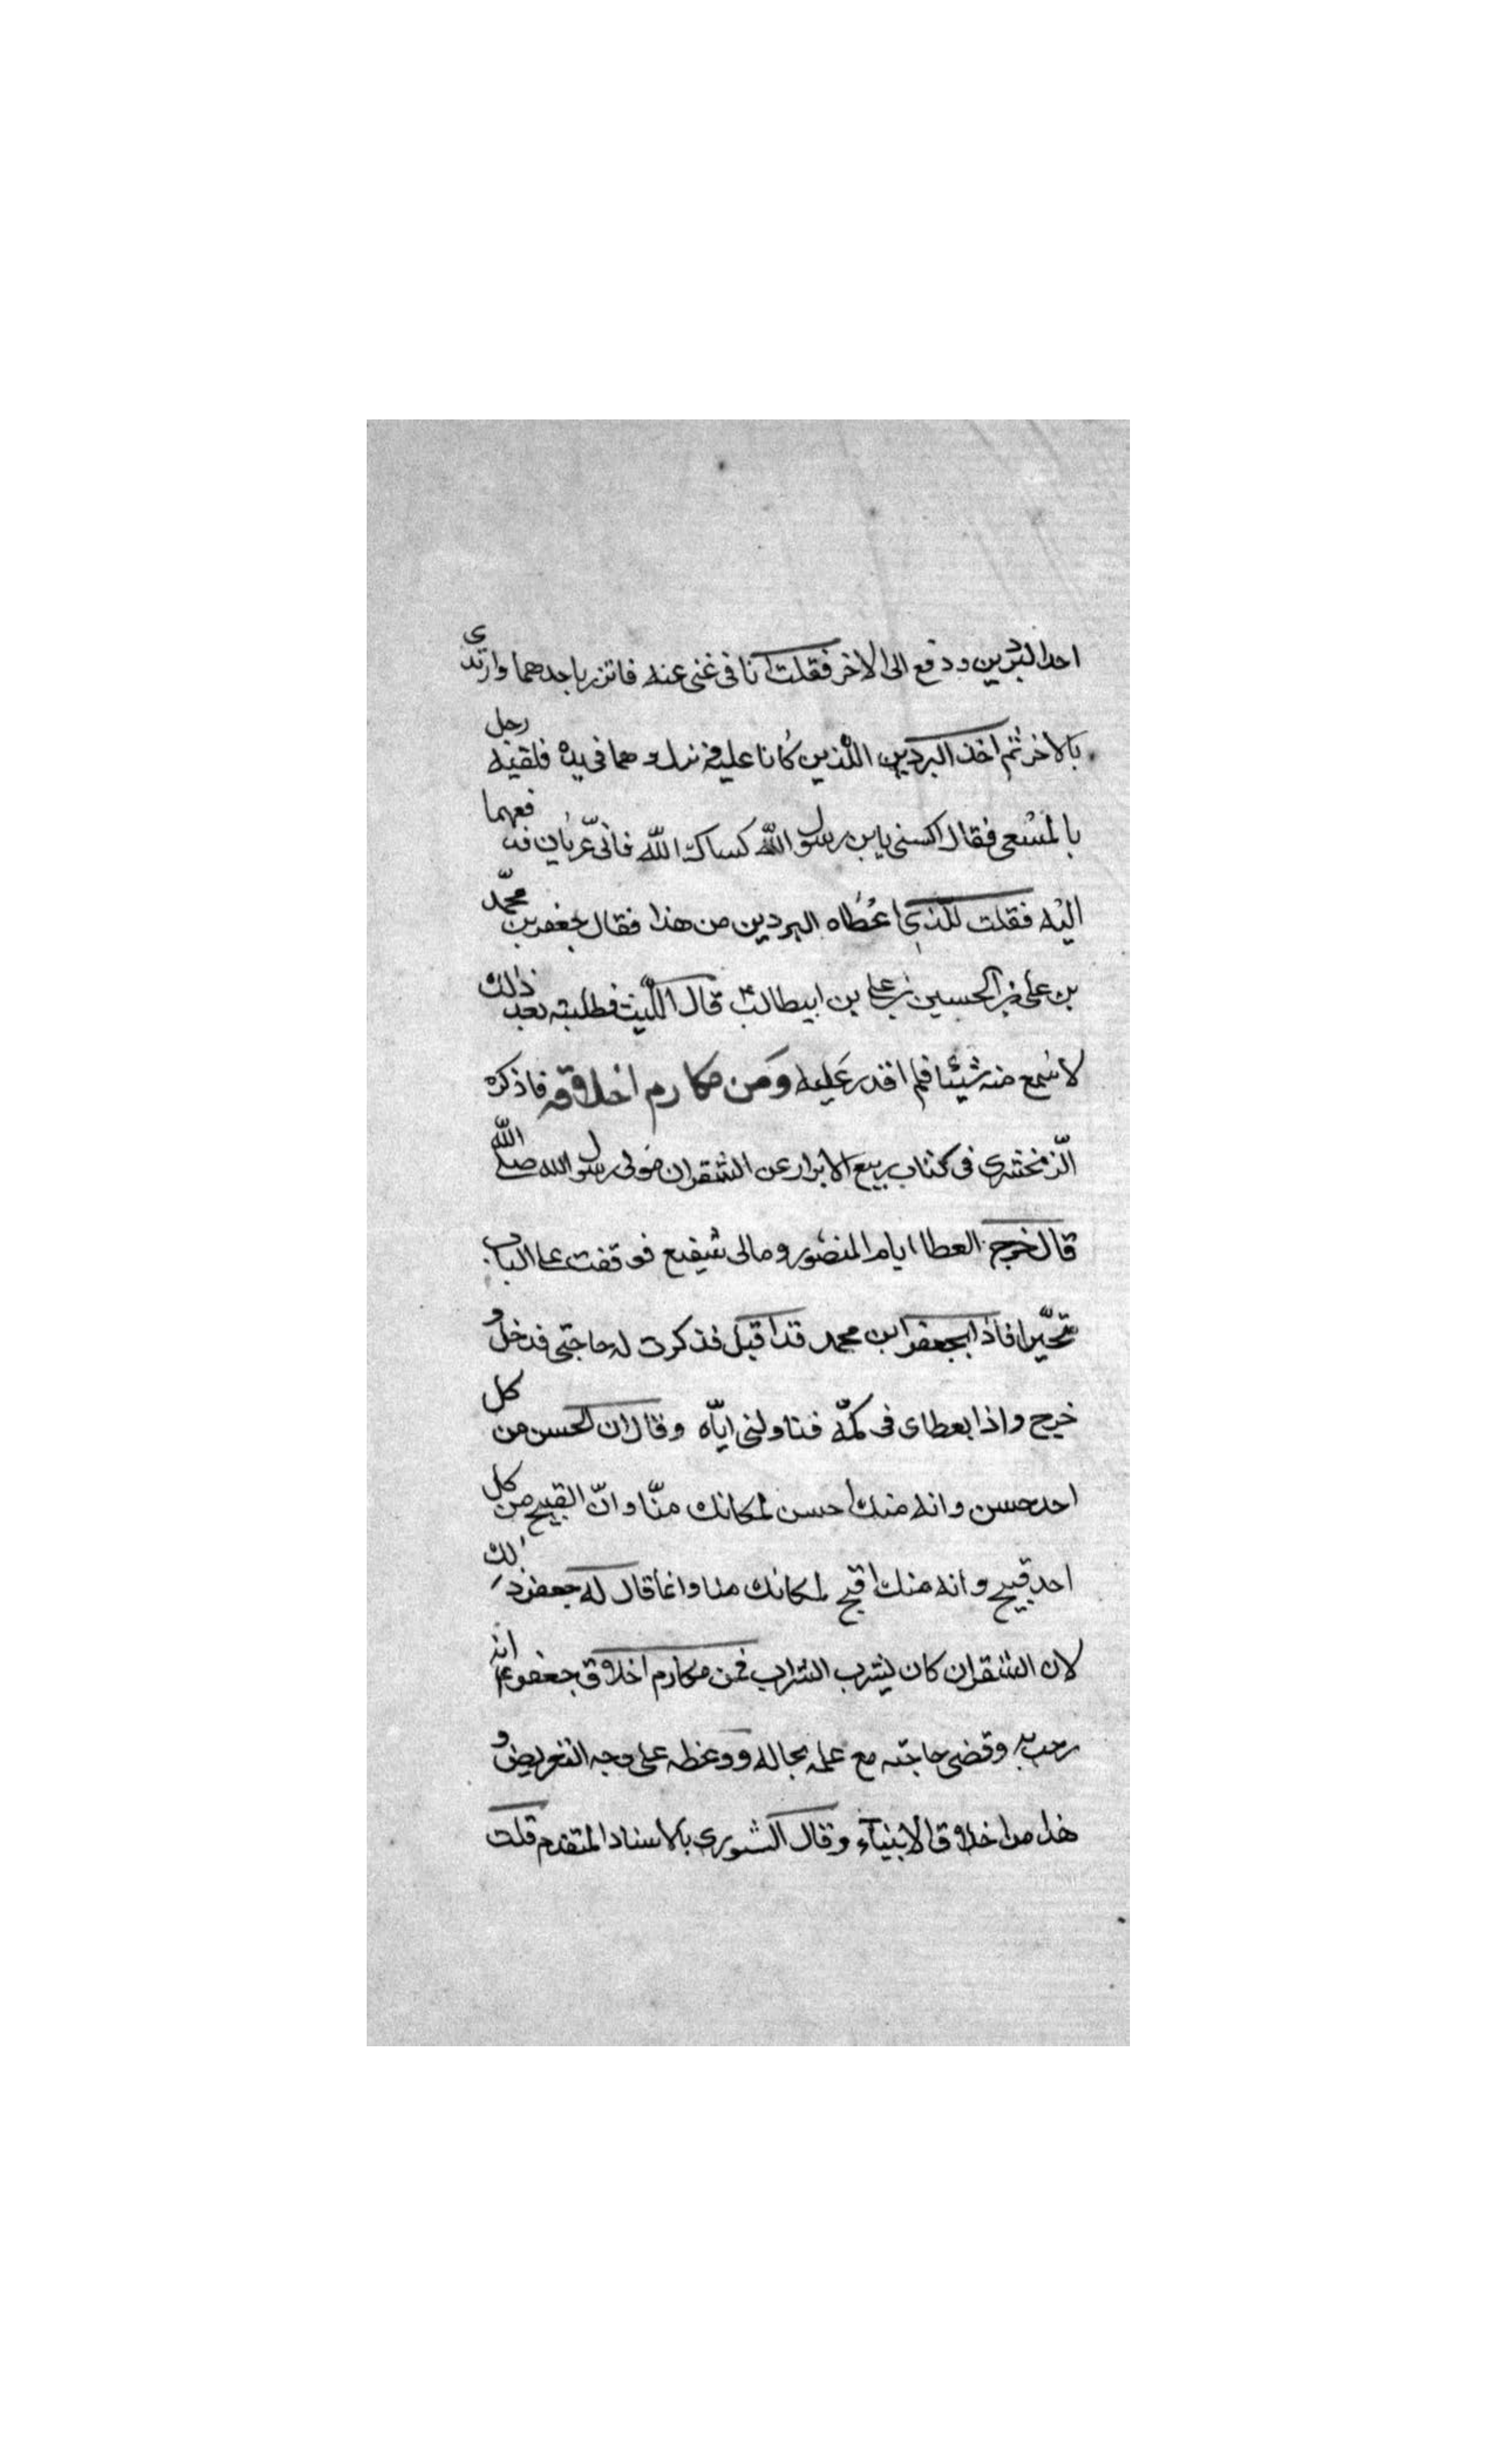 احد البردين ودفع الى الاخر فقلت انا في غنى عنه فاتزر باحدهما وارتدى
بالاخر ثم اخذ البردين اللذين كانا عليه فنزل وهما في يده فلقيه رجل
بالمسعى فقال اكسني يابن رسول الله كساك الله فاني عريان فدفعهما
اليه فقلت للذي اعطاه البردين من هذا فقال جعفر بن محمد
بن على بن الحسين بن على بن ابيطالب قال الليث فطلبته بعد ذلك
لاسمع منه شيئا فلم اقدر عليه ومن مكارم اخلاقه فاذكره
الزمخشرى في كتاب ربيع الابرار عن الشقران مولى رسول الله صلى الله
قال خرج العطا ايام المنصور ومالى شفيع فوقفت على الباب
متحيرا فاذا بجعفر ابن محمد قد اقبل فذكرت له حاجتى فدخل و
خرج واذا بعطاى في كمه فناولنى اياه وقال ان الحسن من كل
احد حسن وانه منك احسن لمكانك منا وان القبيح من كل
احد قبيح وانه منك اقبح لمكانك منا وانما قال له جعفر ذلك
لان الشقران كان يشرب الشراب فمن مكارم اخلاق جعفر انه
رحب به وقضى حاجته مع علمه بحاله ووعظه على وجه التعريض و
هذا من اخلاق الانبيآء وقال الثورى بالاسناد المتقدم قلت